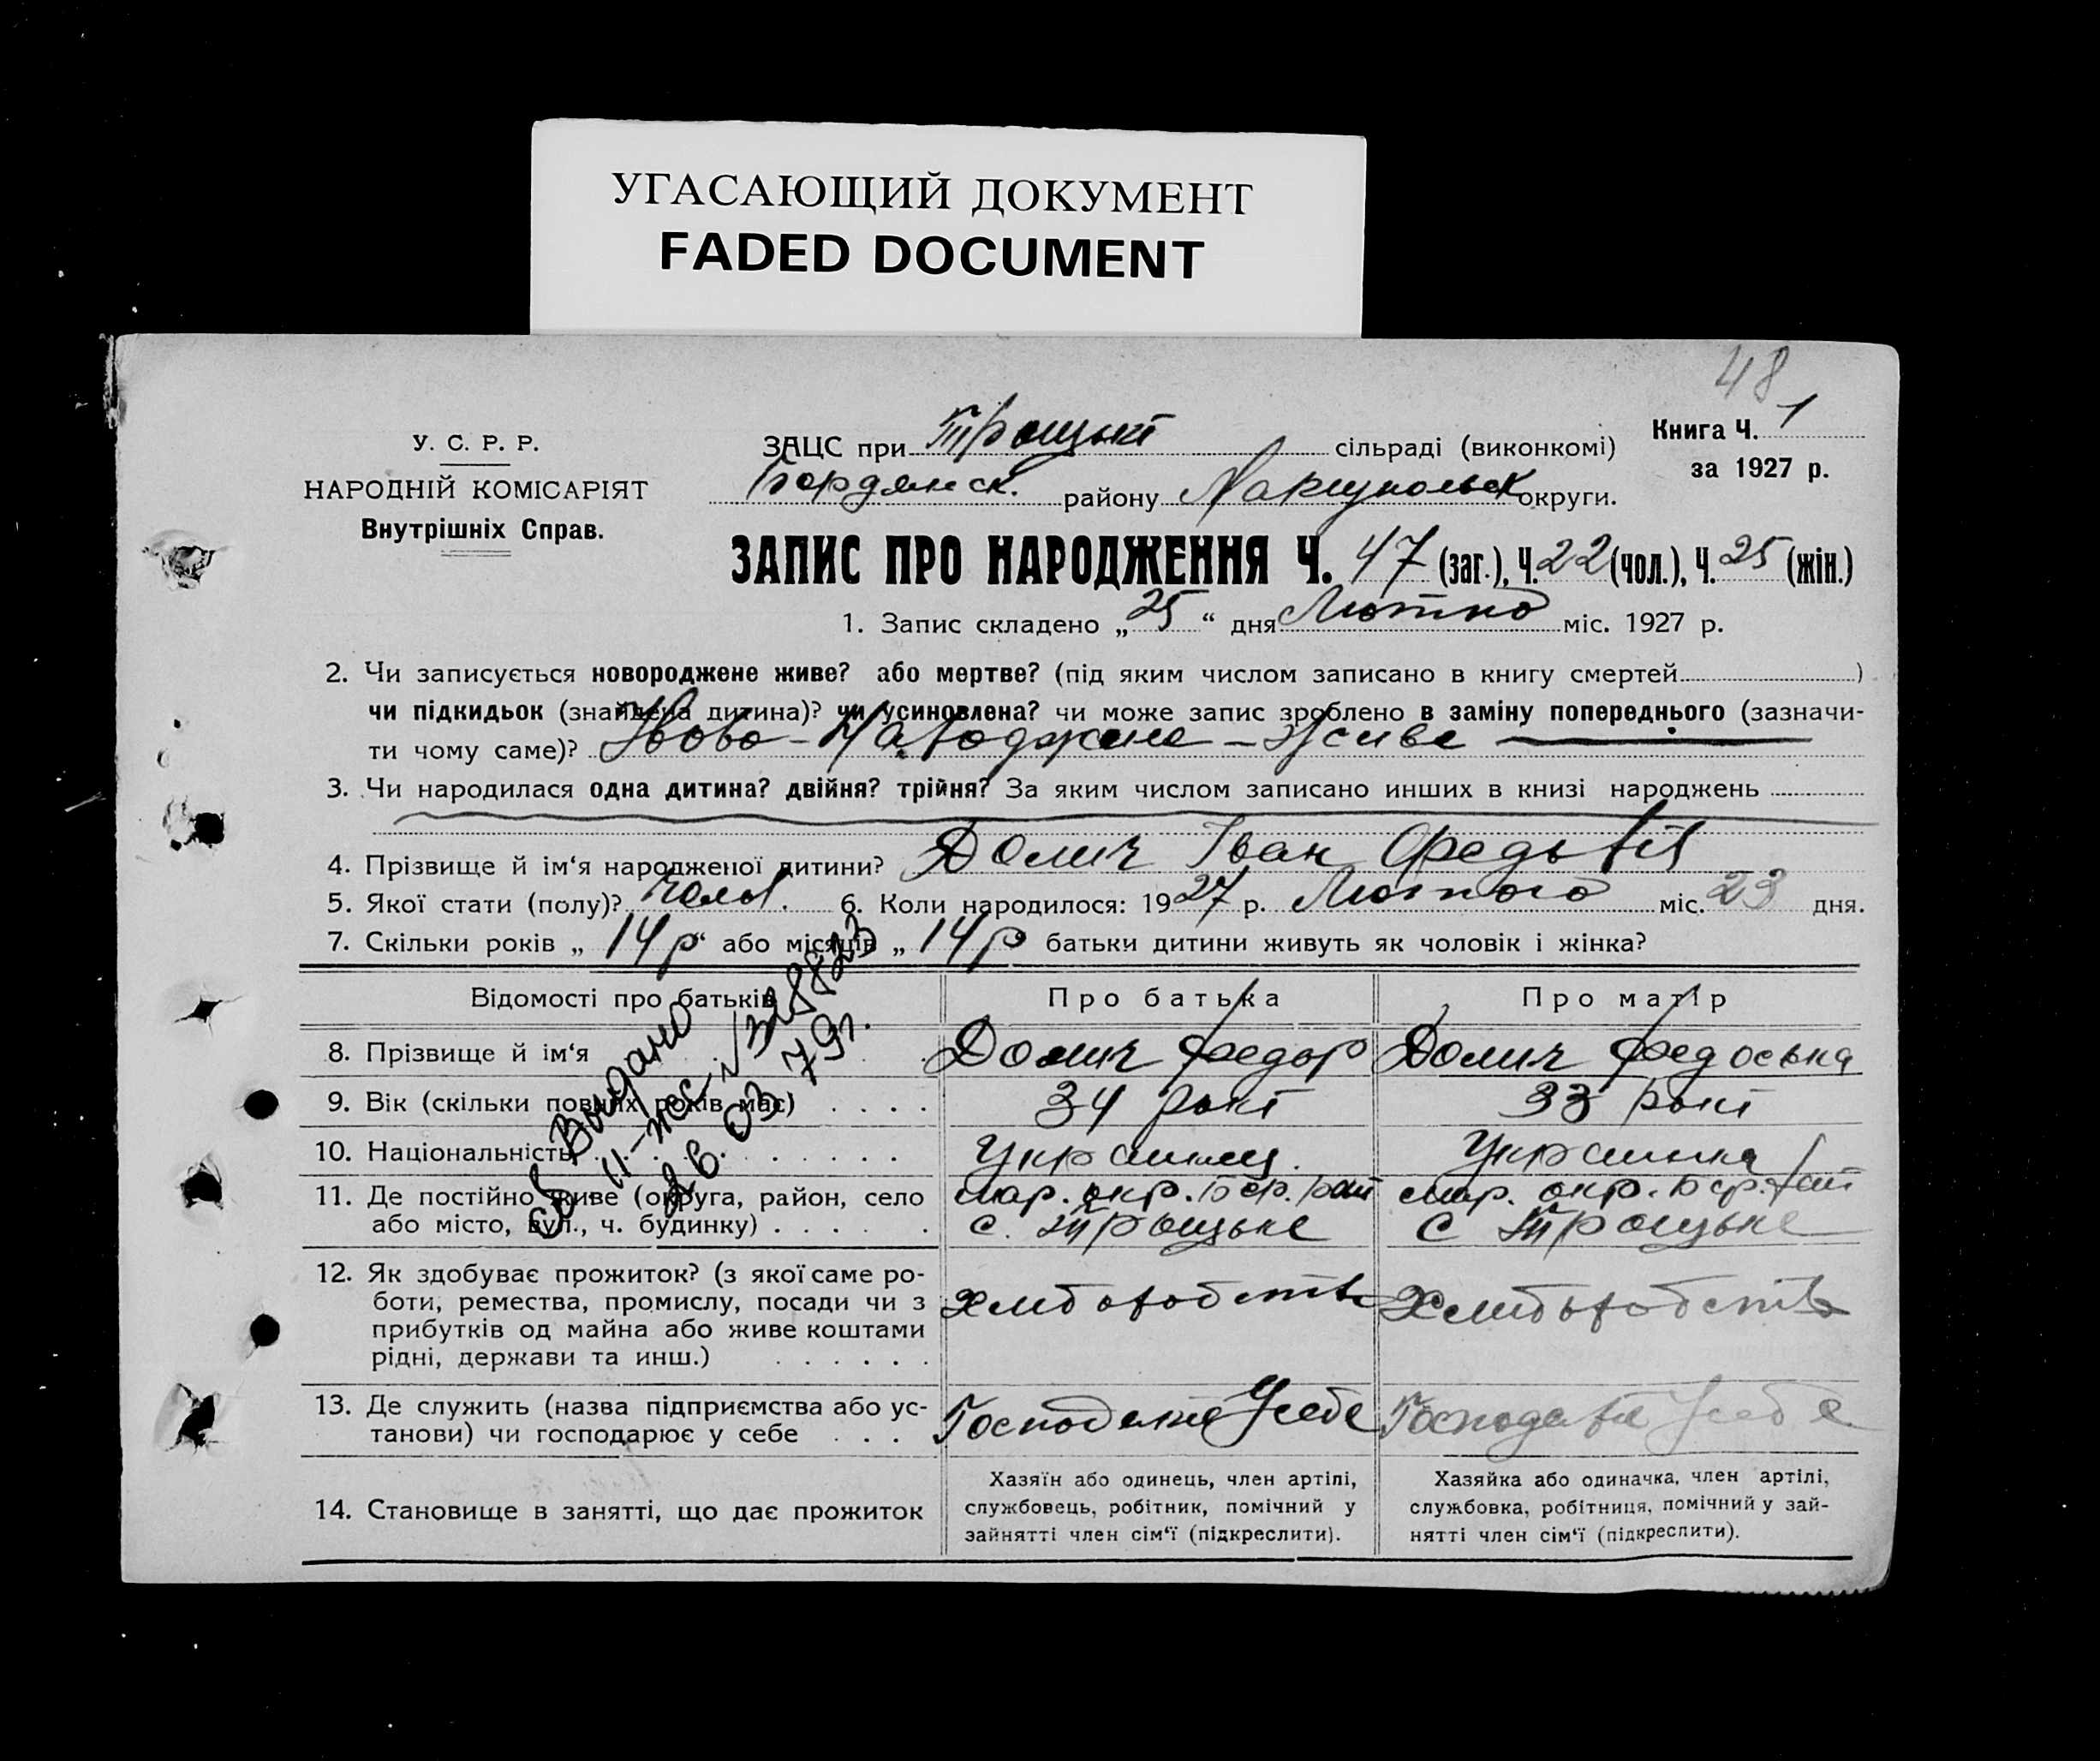 УГАСАЮЩИЙ ДОКУМЕНТ
FADED DOCUMENT
48
У. С. Р. Р.
НАРОДНІЙ КОМІСАРІЯТ
Внутрішніх Справ.
ЗАЦС при Троцькій сільраді (виконкомі)
Бордянск. району Маріупольськ округи.
Книга Ч. 1
за 1927 р.
ЗАПИС ПРО НАРОДЖЕННЯ Ч. 47 (заг.), Ч. 22 (чол.), Ч. 25 (жін.)
1. Запис складено „ 25 “ дня Лютно міс. 1927 р.
2. Чи записується новороджене живе? або мертве? (під яким числом записано в книгу смертей )
чи підкидьок (знайдена дитина)? чи усиновлена? чи може запис зроблено в заміну попереднього (зазначи-
ти чому саме)? Ново-Народжене - Живе
3. Чи народилася одна дитина? двійня? трійня? За яким числом записано инших в книзі народжень
4. Прізвище й ім‘я народженої дитини? Долич Іван
5. Якої стати (полу)? Чолов. 6. Коли народилося: 1927 р. Лютого міс. 23 дня.
7. Скільки років „ 14 р “ або місяців „ 14 р батьки дитини живуть як чоловік і жінка?
Відомості про батьків Про батька Про матір
8. Прізвище й ім‘я Долич Федор Долич Федоська
9. Вік (скільки повних років має) . . . . 34 рокі 33 рокі
10. Національність . . . . . . . . Украинец. Украинка
11. Де постійно живе (округа, район, село мар. окр. Бер. рай мар. окр. Бер. рай
або місто, вул., ч. будинку) . . . . . . с. Троцьке с Троцьке
12. Як здобуває прожиток? (з якої саме ро-
боти, ремества, промислу, посади чи з Хлібофобств Хлібофобств
прибутків од майна або живе коштами
рідні, держави та инш.) . . . . . .
13. Де служить (назва підприємства або ус- У себе У себе
танови) чи господарює у себе . . .
14. Становище в занятті, що дає прожиток
Хазяїн або одинець, член артілі,
службовець, робітник, помічний у
зайнятті член сім‘ї (підкреслити).
Хазяйка або одиначка, член артілі,
службовка, робітниця, помічний у зай-
нятті член сім‘ї (підкреслити).
св. Выдано
II-ЖС № 328823
26.03.79г.